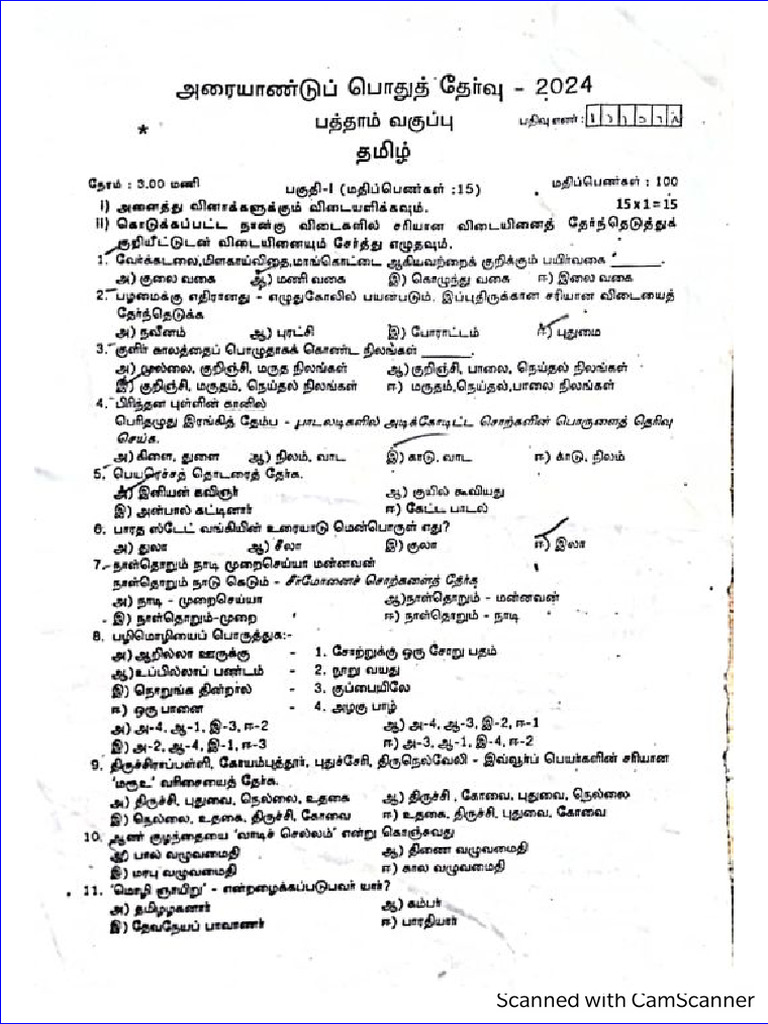 அரையாண்டுப் பொதுத் தேர்வு - 2024
பத்தாம் வகுப்பு
பதிவு எண் :
*
தமிழ்
நேரம் : 3.00 மணி
பகுதி-I (மதிப்பெண்கள் :15)
மதிப்பெண்கள் : 100
i) அனைத்து வினாக்களுக்கும் விடையளிக்கவும். 15x1=15
ii) கொடுக்கப்பட்ட நான்கு விடைகளில் சரியான விடையினைத் தேர்ந்தெடுத்துக்
குறியீட்டுடன் விடையினையும் சேர்த்து எழுதவும்.
1. வேர்க்கடலை,மிளகாய்விதை,மாங்கொட்டை ஆகியவற்றைக் குறிக்கும் பயிர்வகை ______.
அ) குலை வகை ஆ) மணி வகை இ) கொழுந்து வகை ஈ) இலை வகை
2. பழமைக்கு எதிரானது - எழுதுகோலில் பயன்படும். இப்புதிருக்கான சரியான விடையைத்
தேர்ந்தெடுக்க
அ) நவீனம் ஆ) புரட்சி இ) போராட்டம் ஈ) புதுமை
3. குளிர் காலத்தைப் பொழுதாகக் கொண்ட நிலங்கள் ______.
அ) முல்லை, குறிஞ்சி, மருத நிலங்கள் ஆ) குறிஞ்சி, பாலை, நெய்தல் நிலங்கள்
இ) குறிஞ்சி, மருதம், நெய்தல் நிலங்கள் ஈ) மருதம்,நெய்தல்,பாலை நிலங்கள்
4. பிரிந்தன புள்ளின் கானில்
பெரிதழுது இரங்கித் தேம்ப - பாடலடிகளில் அடிக்கோடிட்ட சொற்களின் பொருளைத் தெரிவு
செய்க.
அ) கிளை, துளை ஆ) நிலம், வாட இ) காடு, வாட ஈ) காடு, நிலம்
5. பெயரெச்சத் தொடரைத் தேர்க.
அ) இனியன் கவிஞர் ஆ) குயில் கூவியது
இ) அன்பால் கட்டினார் ஈ) கேட்ட பாடல்
6. பாரத ஸ்டேட் வங்கியின் உரையாடு மென்பொருள் எது?
அ) துலா ஆ) சீலா இ) குலா ஈ) இலா
7. நாள்தொறும் நாடி முறைசெய்யா மன்னவன்
நாள்தொறும் நாடு கெடும் - சீர்மோனைச் சொற்களைத் தேர்க
அ) நாடி - முறைசெய்யா ஆ)நாள்தொறும் - மன்னவன்
இ) நாள்தொறும்-முறை ஈ) நாள்தொறும் - நாடி
8. பழிமொழியைப் பொருத்துக:-
அ) ஆறில்லா ஊருக்கு - 1. சோற்றுக்கு ஒரு சோறு பதம்
ஆ)உப்பில்லாப் பண்டம் - 2. நூறு வயது
இ) நொறுங்க தின்றால் - 3. குப்பையிலே
ஈ) ஒரு பானை - 4. அழகு பாழ்
அ) அ-4, ஆ-1, இ-3, ஈ-2 ஆ) அ-4, ஆ-3, இ-2, ஈ-1
இ) அ-2, ஆ-4, இ-1, ஈ-3 ஈ) அ-3, ஆ-1, இ-4, ஈ-2
9. திருச்சிராப்பள்ளி, கோயம்புத்தூர், புதுச்சேரி, திருநெல்வேலி - இவ்வூர்ப் பெயர்களின் சரியான
'மரூஉ' வரிசையைத் தேர்க.
அ) திருச்சி, புதுவை, நெல்லை, உதகை ஆ) திருச்சி , கோவை, புதுவை, நெல்லை
இ) நெல்லை, உதகை, திருச்சி, கோவை ஈ) உதகை, திருச்சி, புதுவை, கோவை
10. ஆண் குழந்தையை 'வாடிச் செல்லம்' என்று கொஞ்சுவது
அ) பால் வழுவமைதி ஆ) திணை வழுவமைதி
இ) மரபு வழுவமைதி ஈ) கால வழுவமைதி
11. 'மொழி ஞாயிறு' - என்றழைக்கப்படுபவர் யார்?
அ) தமிழழகனார் ஆ) கம்பர்
இ) தேவநேயப் பாவாணர் ஈ) பாரதியார்
Scanned with CamScanner